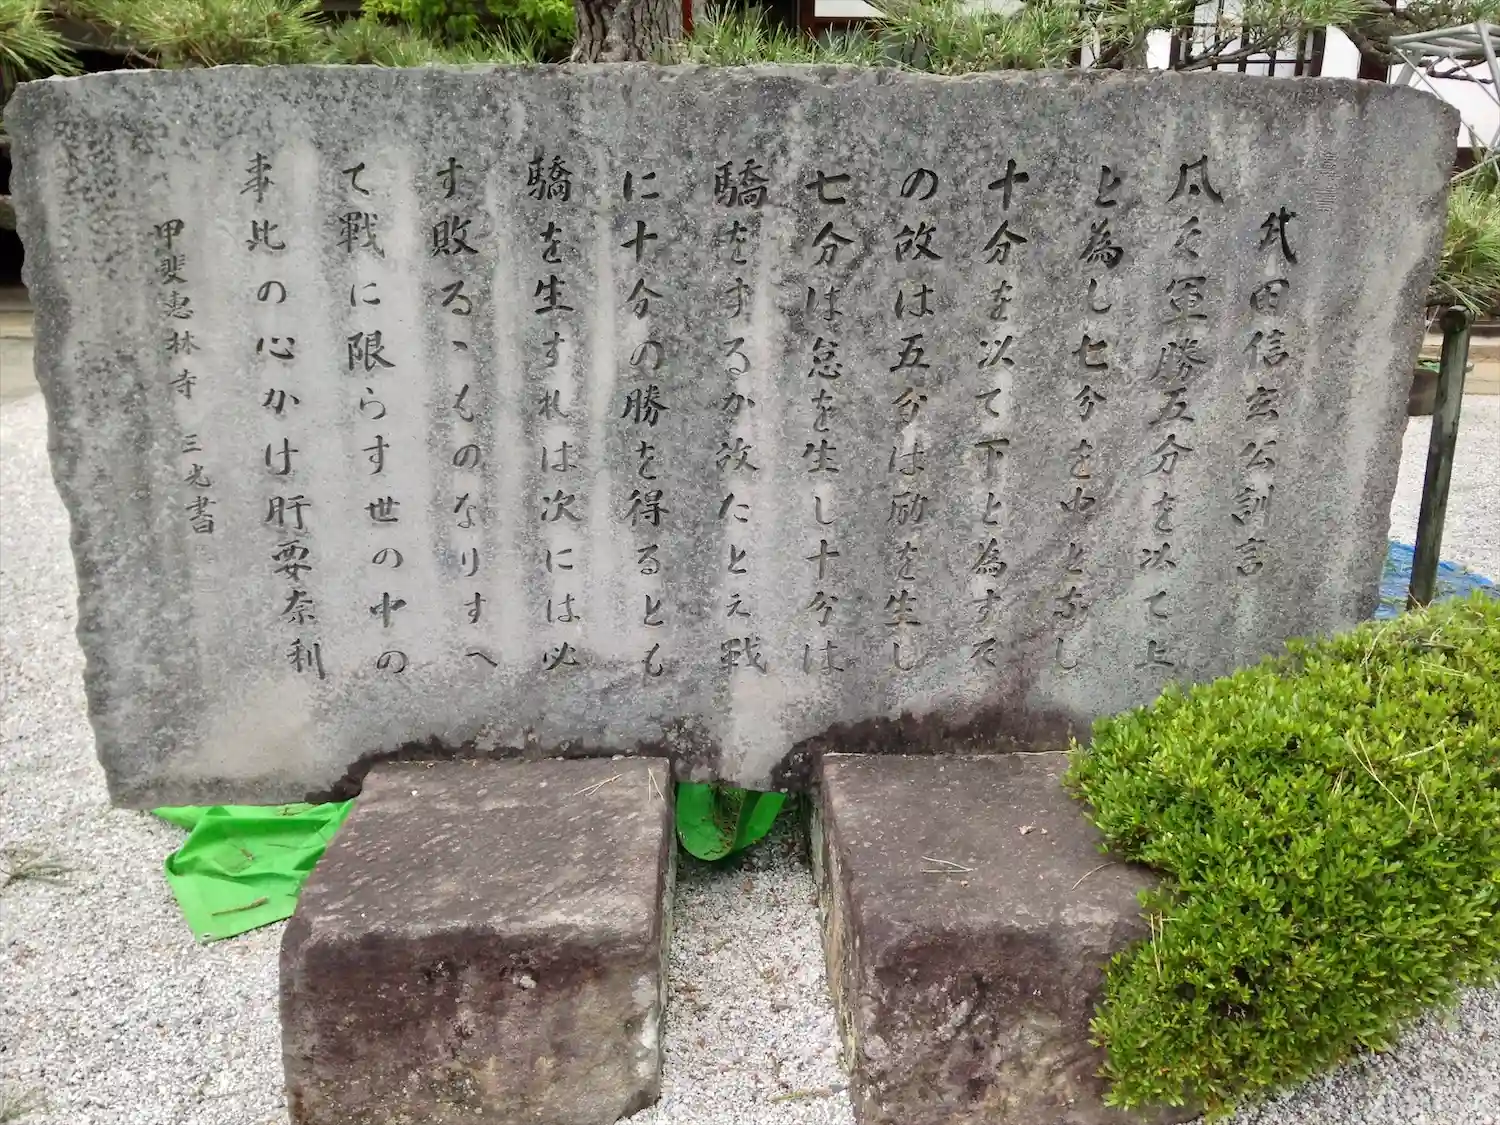 武田信玄公訓言
凡そ軍勝五分を以て上
と為し七分を中となし
十分を以て下と為す其
の故は五分は励を生し
七分は怠を生し十分は
驕をするか故たとえ戦
に十分の勝を得るとも
驕を生すれは次には必
す敗るゝものなりすへ
て戦に限らす世の中の
事此の心かけ肝要奈利
甲斐恵林寺 三光書